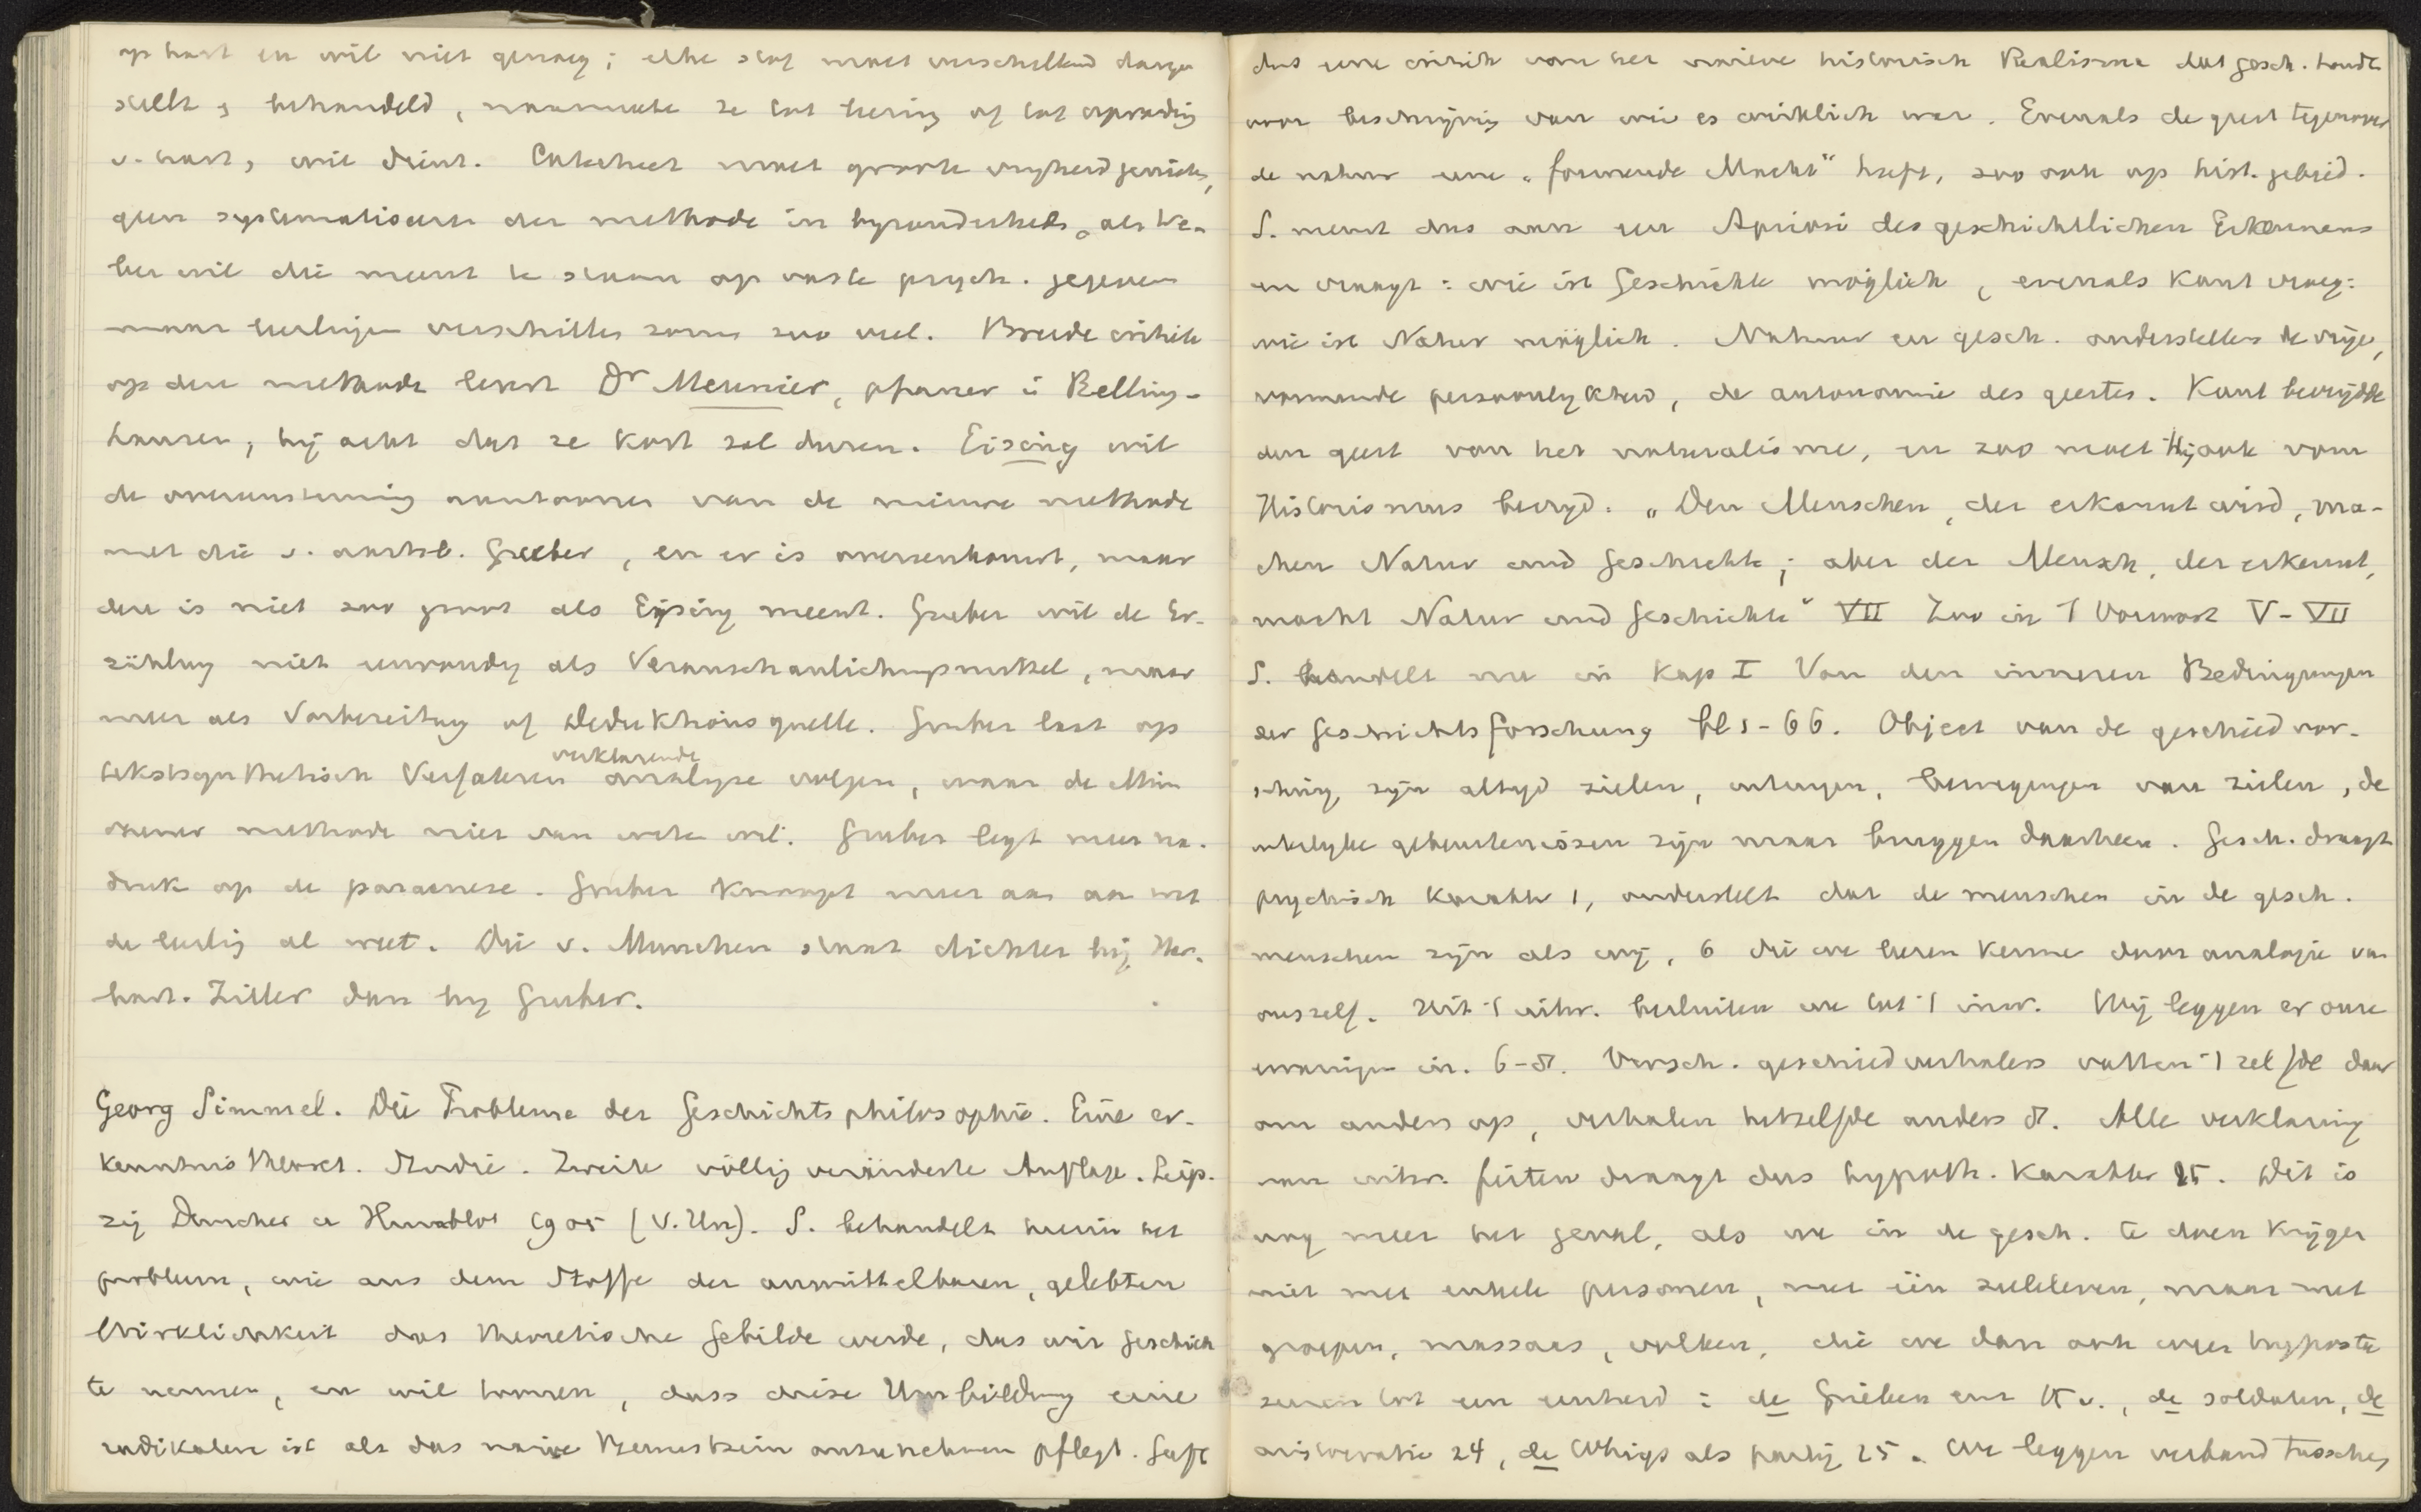 op hart en wil niet genoeg; elke stof moet verschillend darge
stellt & behandeld, naarmate ze tot leering of tot opvoeding
v. hart & wil dient. Catecheet moet groote vrijheid genieten,
geen systematiseeren der methode in byzonderheden, als We-
ber wil die meent te staan op vaste psych. gegevens
maar leerlingen verschillen soms zoo veel. Breede critiek
op deze methode levert Dr Meunier, pfarrer in Belling-
hausen, hij acht dat ze kort zal duren. Eising wil
de overeenstemming aantoonen van de nieuwe methode
met die v. aartsb. Gruber, en er is overeenkomst, maar
deze is niet zoo groot als Eising meent. Gruber wil de Er-
zählung niet eenvoudig als Veranschaulichungsmittel, maar
meer als Vorbereitung of Deduktionsquelle. Gruber laat op
verklarende
tekstsynthetisch Verfahren analyse volgen, waar de Mün
chener methode niet van weten wil. Gruber legt meer na-
druk op de paraenese. Gruber knoopt meer aan aan wat
de leerling al weet. Die v. Munchen staat dichter bij Her-
bart-Ziller dan by Gruber.
Georg Simmel. Die Probleme der Geschichtsphilosophie. Eine er-
kenntnistheoret. Studie. Zweite völlig veränderte Auflage. Leip-
zig Duncker u Humblot 1905 (V. Un). S. behandelt hierin het
probleem, wie aus dem Stoffe der unmittelbaren, gelebten
Wirklichkeit das theoretische Gebilde werde, das wir Geschich
te nennen, en wil toonen, dass diese Umbildung eine
radikalere ist als das naive Bewustsein anzunehmen pflegt. Geeft
dus eene critiek van het naieve historisch Realisme dat gesch. houdt
voor beschrijving van wie es wirklich war. Evenals de geest tegenover
de natuur eene „formende Macht" heeft, zoo ook op hist. gebied.
S. neemt dus aan een Apriori des geschichtlichen Erkennens
en vraagt: wie ist Geschichte möglich, evenals Kant vroeg:
wie ist Natur möglich. Natuur en gesch. onderstellen de vrije,
vormende persoonlykheid, de autonomie des geestes. Kant bevrijdde
den geest van het naturalisme, en zoo moet Hij ook vom
Historismus bevrijd. „Den Menschen, der erkannt wird, ma-
chen Natur und Geschichte; aber der Mensch, der erkennt,
macht Natur und Geschichte" VII Zoo in 't Vorwort V-VII
S. handelt nu in Kap I Von den inneren Bedingungen
der Geschichtsforschung bl 1-66. Object van de geschiedvor-
sching zijn altijd zielen, bewegingen van zielen, de
uiterlyke gebeurtenissen zijn maar bruggen daarheen. Gesch. draagt
psychisch karakter 1, onderstelt dat de menschen in de gesch.
menschen zijn als wij, 6 die we leeren kennen door analogie van
onszelf. Uit 't uitw. besluiten we tot 't inw. Wij leggen er onze
ervaringen in. 6-8. Versch. geschiedverhalers vatten 't zelfde daar
om anders op, verhalen hetzelfde anders 8. Alle verklaring
van uitw. feiten draagt dus hypoth. karakter 15. Dit is
nog meer het geval, als we in de gesch. te doen krijgen
niet met enkele personen, met één zieleleven, maar met
groepen, massaas, volken, die we dan ook weer hyposta
seeren tot een eenheid: de Grieken enz 15 v., de soldaten, de
aristocratie 24, de Whigs als partij 25. We leggen verband tusschen